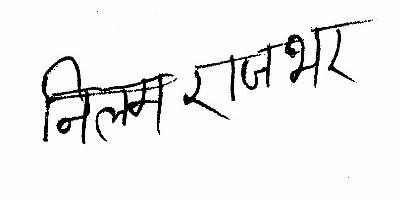 निलम राजभर